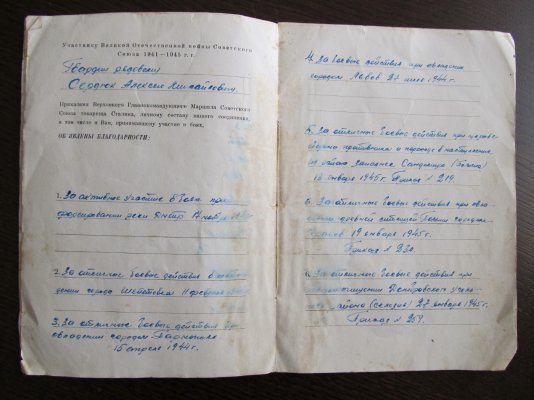 Участнику Великой Отечественной войны Советского
Союза 1941—1945 г. г.
Гвардии рядовому
Сердюк Алексею Михайловичу
Приказами Верховного Главнокомандующего Маршала Советского
Союза товарища Сталина, личному составу нашего соединения,
в том числе и Вам, принимавшему участие в боях,
ОБ'ЯВЛЕНЫ БЛАГОДАРНОСТИ:
1. За активное участие в боях при
форсировании реки Днепр
2. За отличные боевые действия в
дении города Шепетовки 11 февраля
3. За отличные боевые действия
овладении городом Тарнополь
15 апреля 1944 г.
4. За боевые действия при овладении
городом Львов 27 июля 1944 г.
5. За отличные боевые действия при
обороны противника и переходе в наступление
западнее Сандомира
13 января 1945 г. Приказ № 219.
6. За отличные боевые действия при
древней столицей Польши городом
19 января 1945 г.
Приказ № 230.
За отличные боевые действия при
Домбровского
района 27 января 1945 г.
Приказ № 259.